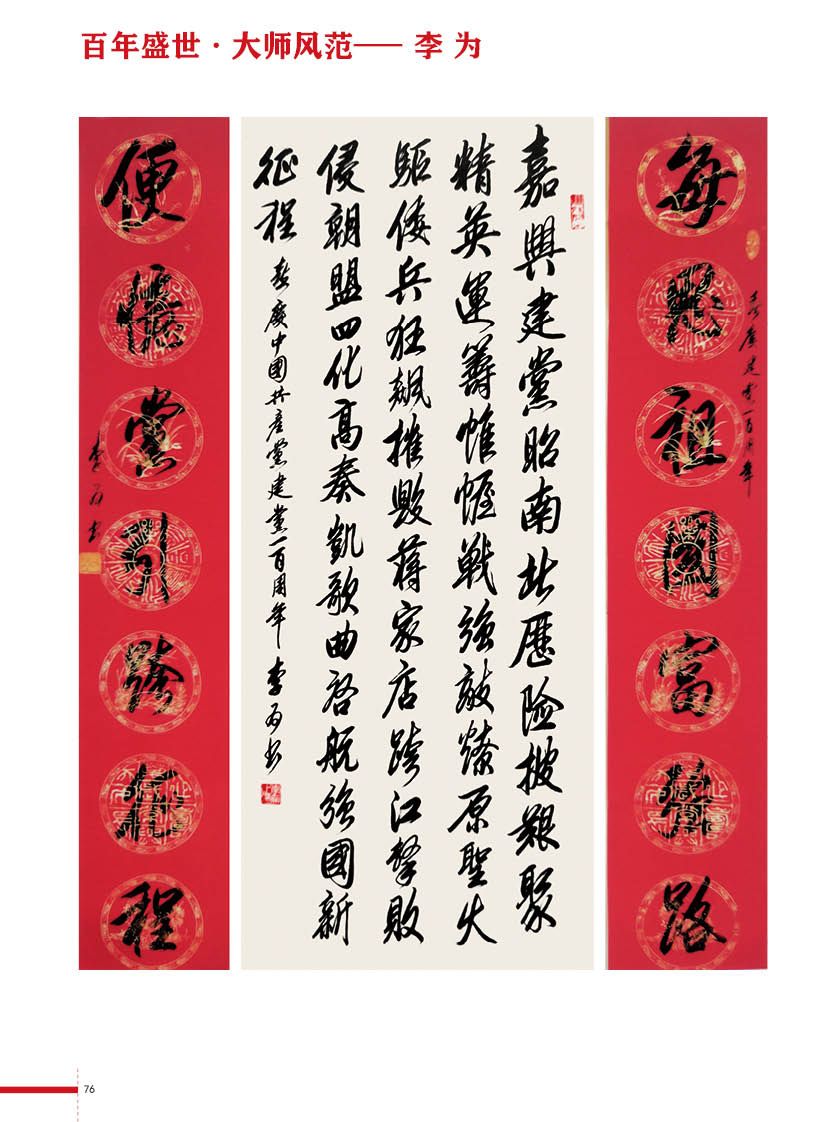 百年盛世·大师风范—— 李 为
每思祖國富路
喜慶建黨一百周年
嘉興建黨昭南北歷险披艱聚
精英運籌帷幄戦強敵燎原聖火
驅倭兵狂飆摧毀蔣家店跨江擊敗
侵朝盟四化高奏凱歌曲啓航強國新
征程
喜慶中國共產黨建黨一百周年 李為书
便憶黨引跨征程
李為书
76